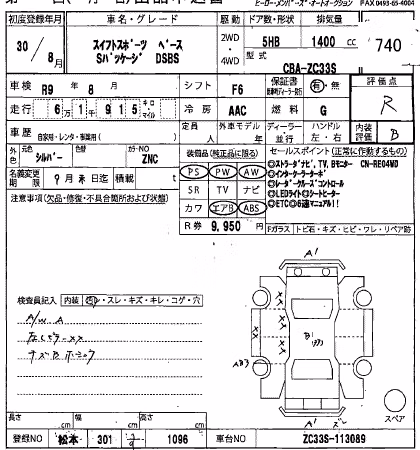 PAX0493-65-4004
初度登録年月
車名・グレード
駆動
ドア数・形状
排気量
30/8月
スイフトスポーツ ベース
Sパッケージ DSBS
2WD・4WD
5HB
1400 cc
740
型式
CBA-ZC33S
車検 R9年 8月
シフト F6
保証書 有・無
評価点
R
走行 6万1千915キロ・マイル
冷房 AAC
燃料 G
車歴 自家用・レンタ・事業用( )
定員
外車モデル 年
ディーラー 並行
ハンドル 左・右
内装評価 B
外色 シルバー
色替
カラーNO ZNC
装備品(純正品に限る)
セールスポイント(正常に作動するもの)
PS PW AW
◎ストラーダナビ,TV,Bモニター CN-RE04WD
◎インタークーラーターボ
名義変更期限 9月末日迄
積載 t
SR TV ナビ
◎レーダークルーズコントロール
◎LEDライト◎シートヒーター
注意事項(欠品・修復・不具合箇所および状態)
カワ エアB ABS
◎ETC◎6速マニュアル!!
R券 9,950円
Fガラス トビ石・キズ・ヒビ・ワレ・リペア跡
検査員記入
内装 ・スレ・キズ・キレ・コゲ・穴
A/W A
A1
XX
XX
B1
AB3
A1
スペア
長さ cm
幅 cm
高さ cm
登録NO 松本 301 1096
車台NO ZC33S-113089